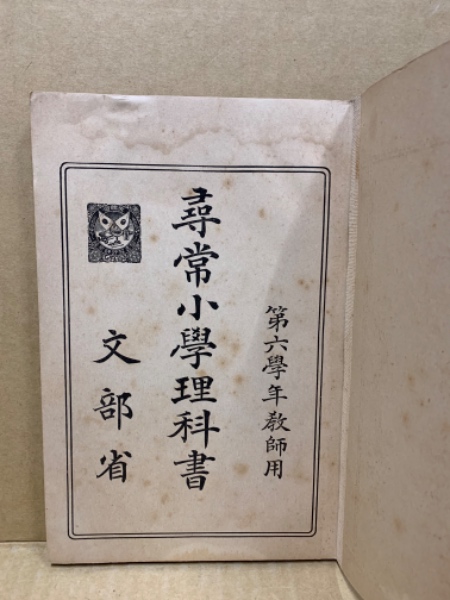 第六學年教師用
尋常小學理科書
文部省